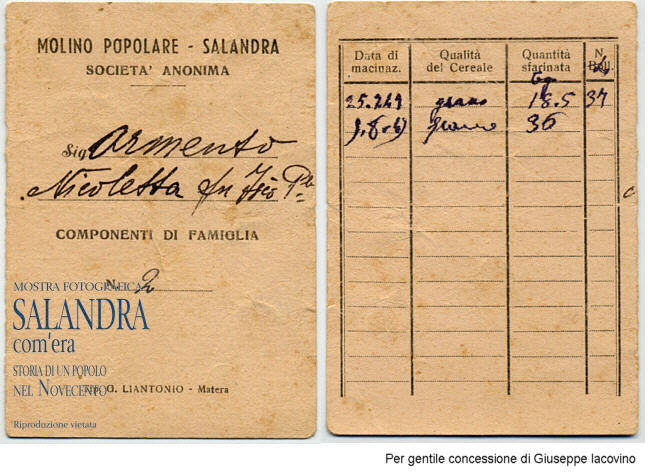 MOLINO POPOLARE - SALANDRA
SOCIETA' ANONIMA
Sig. Armento
Nicoletta fu
COMPONENTI DI FAMIGLIA
N. 2
MOSTRA FOTOGRAFICA
SALANDRA
com'era
STORIA DI UN POPOLO
NEL NOVECENTO
G. LIANTONIO - Matera
Riproduzione vietata
Data di macinaz. Qualità del Cereale Quantità sfarinata N. Boll.
grano 18.5 37
grano 36
Per gentile concessione di Giuseppe Iacovino